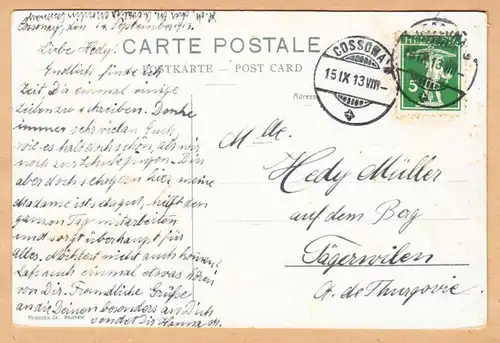 Cossonay, den 14. September 1913.
CARTE POSTALE
POSTKARTE — POST CARD
Liebe Hedy!
Endlich finde ich
Zeit, Dir einmal einige
Zeilen zu schreiben. Denke
immer sehr viel an Euch,
wie es halt auch schön, als wir
noch zur Schule gingen. Bin
aber doch sehr gern hier, meine
Madame ist sehr gut, hilft den
ganzen Tag mitarbeiten
und sorgt überhaupt für
alles. Möchtest nicht auch kommen?
Lass auch einmal etwas hören
von Dir. Freundliche Grüße
an die Deinen besonders an Dich
sendet Dir Hanna
Phototypie Co., Neuchâtel
COSSONAY
15 IX 13 VIII
5
Adresse
Mlle.
Hedy Müller
auf dem Berg
Tägerwilen
Ct. de Thurgovie